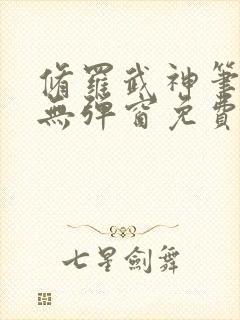 脩羅武神筆
無彈窗免費
七星劍舞